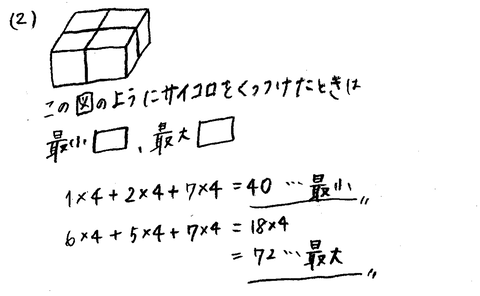 (2)
この図のようにサイコロをくっつけたときは
最小□、最大□
1×4+2×4+7×4=40…最小〃
6×4+5×4+7×4=18×4
=72…最大〃